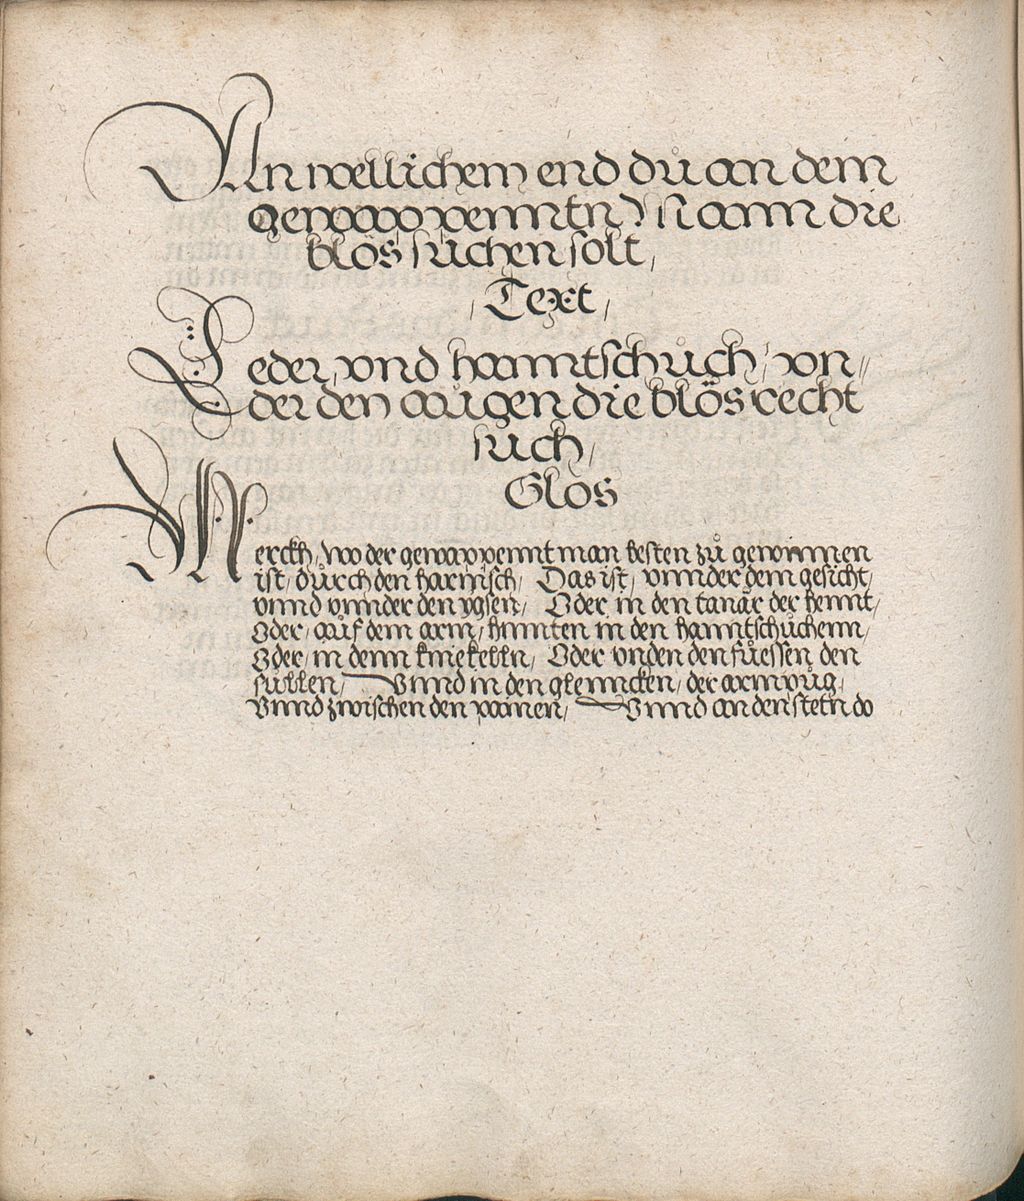 An wellichem end dů an dem
gewappenntn Mann die
blös sůchen solt,
, Text ,
Leder, vnd hanntschůch, vn„
der den aůgen die blös recht
sůch,
Glos
Merckh, wo der gewappennt man besten zů gewinnen
ist, důrch den harnisch, Das ist, vnnder dem gesicht,
vnnd vnnder den ÿgsen, Oder in den tanär der hennt,
Oder, aůf dem arm, hinnten in den hanntschůchenn,
Oder, in denn kniekelln, Oder vnden den fůessen den
sůllen, Vnnd in den glenncken, der armpůg,
Vnnd zwischen den painen, Vnnd an den stetn do